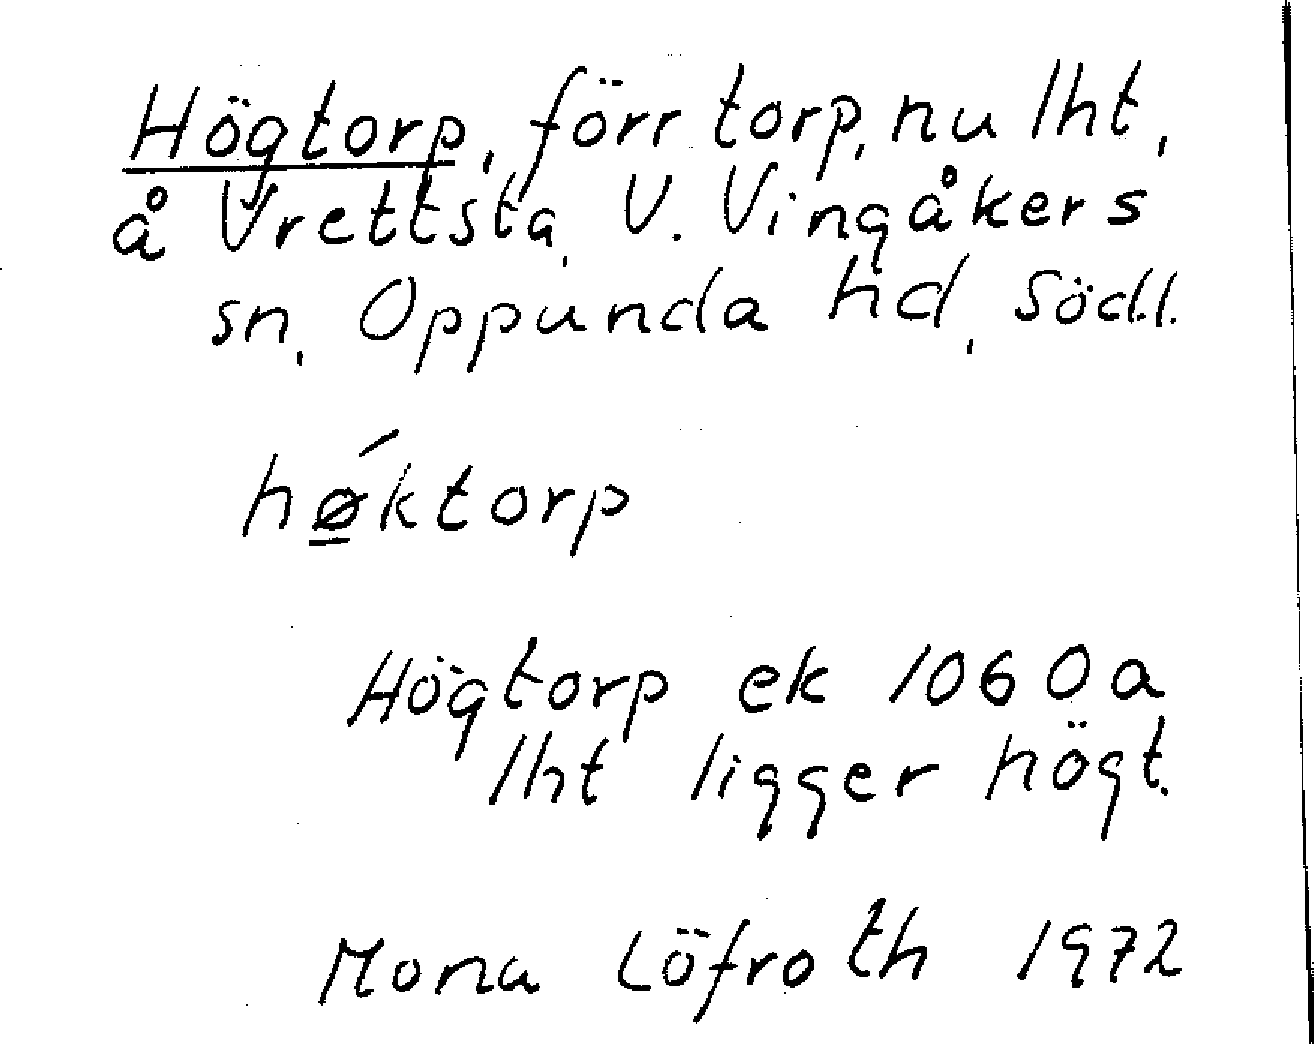 Högtorp, förr torp, nu lht,
å Vrettsta, V. Vingåkers
sn, Oppunda hd, Södl.
hǿ̲ktorp
Högtorp ek 1060a
lht ligger högt.
Mona Löfroth 1972